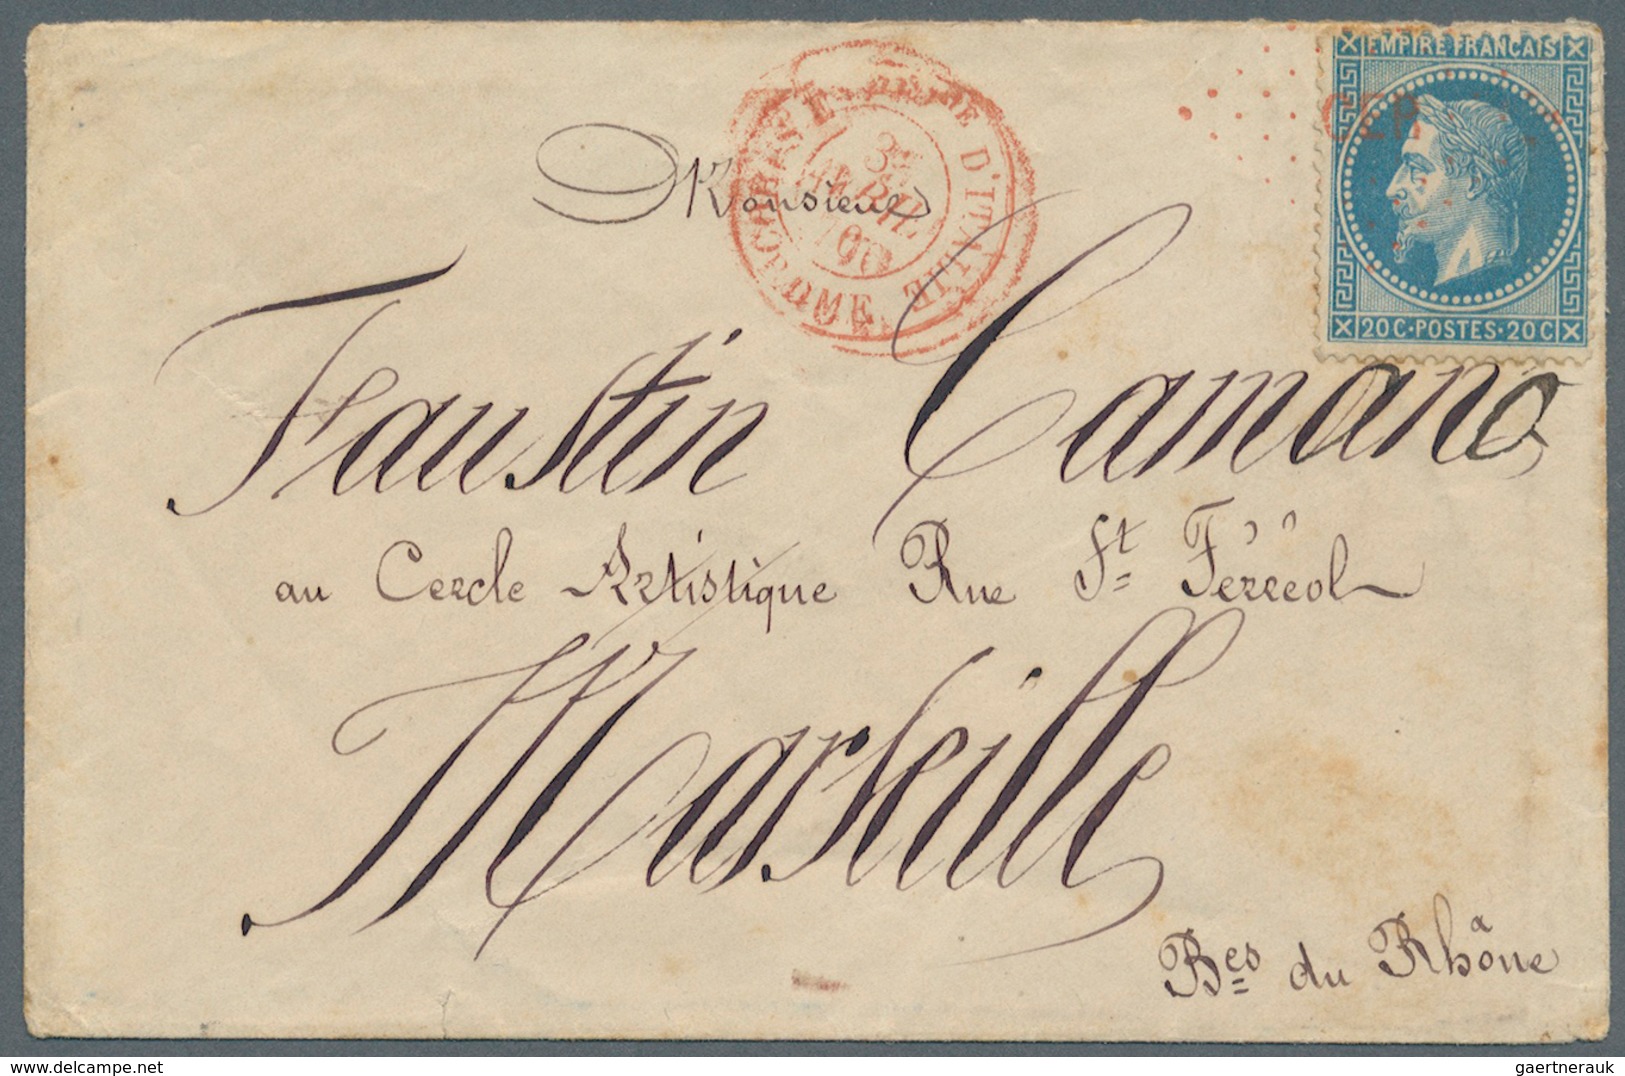 EMPIRE FRANÇAIS
CER
20C·POSTES·20C
D'ITALIE
Monsieur
Faustin Camano
au Cercle Artistique Rue St Férréol
Marseille
Bes du Rhône
delcampe.net
gaertnerauk